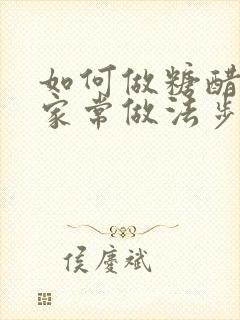 如何做糖醋
家常做法步
侯庆斌